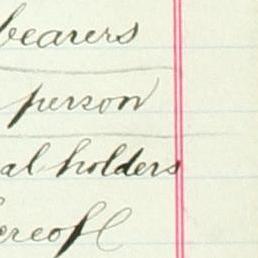 bearers
person
al holders
ereof